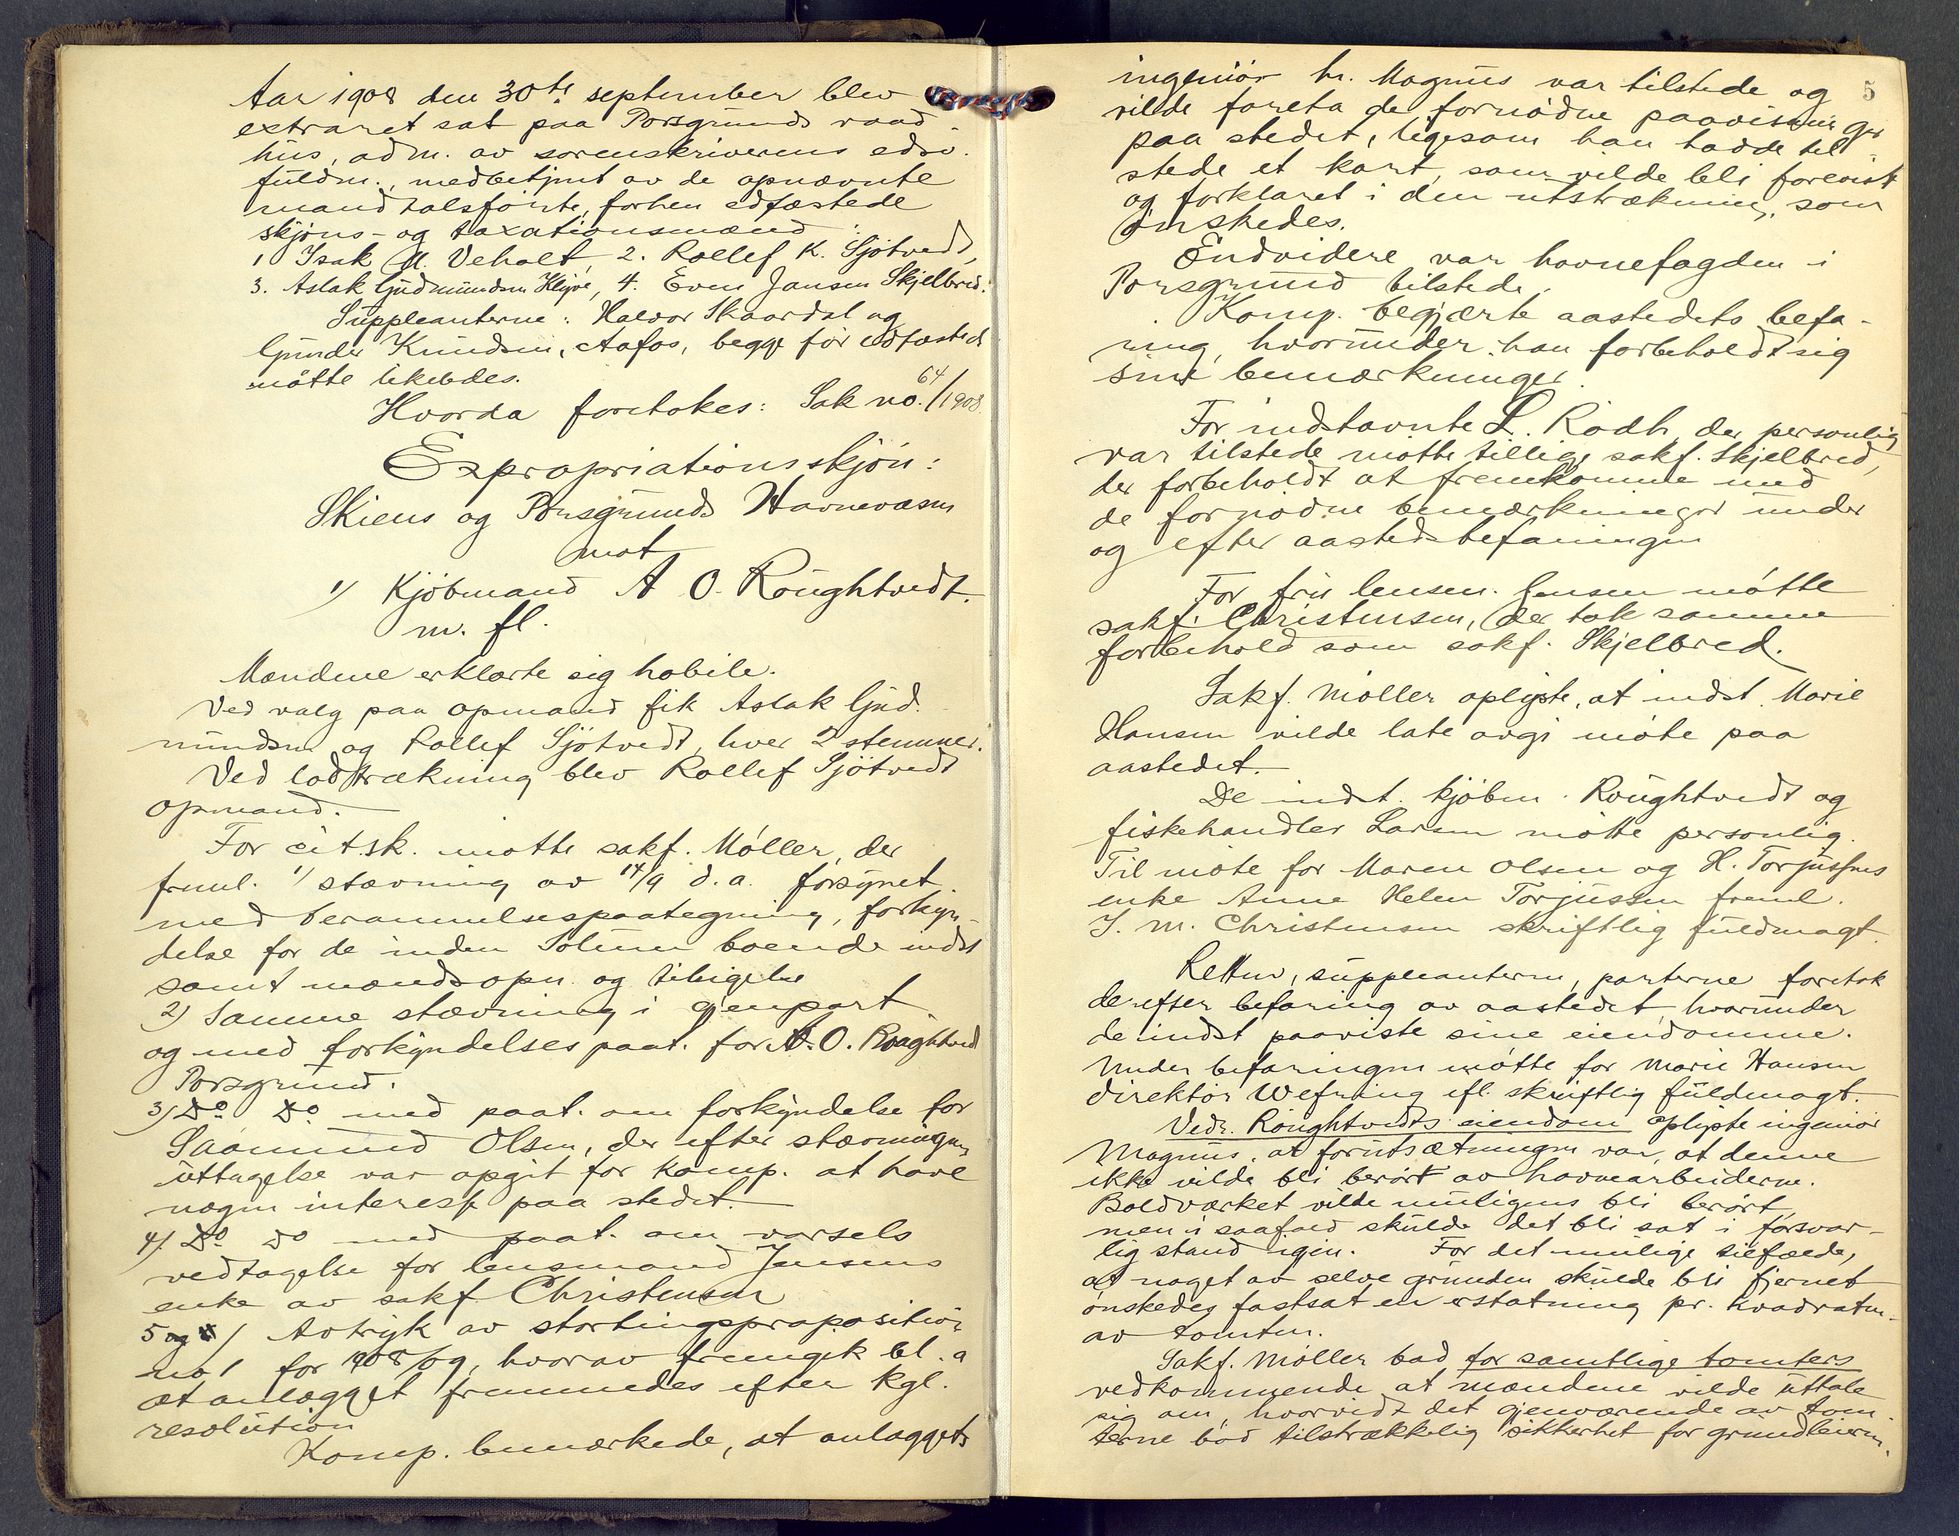 Aar 1908 den 30te september blev
extraret sat paa Porsgrunds raad-
hus, adm. av sorenskriverens edsv.
fuldm., medbetjent av de opnævnte
mandtalsførte, forhen edfæstede
skjøns- og taxationsmænd:
1. Isak M. Veholt, 2. Rollef K. Sjøtvedt,
3. Aslak Gudmundsen Klyve, 4. Even Jansen Skjelbred.
Suppleanterne: Halvor Skaardal og
Gunder Knudsen, Aafos, begge før edfæstede
møtte likeledes.
Hvorda foretokes: Sak no. 64/1908
Expropriationsskjøn:
Skiens og Porsgrunds Havnevæsen
mot
1) Kjøbmand A O. Roughtvedt.
m. fl.
Mændene erklærte sig habile.
Ved valg paa opmand fik Aslak Gud-
mundsen og Rollef Sjøtvedt, hver 2 stemmer.
Ved lodtrækning blev Rollef Sjøtvedt
opmand.
For cit.sk. møtte sakf. Møller, der
freml. 1) stævning av 14/9 d.a. forsynet
med berammelsespaategning, forkyn-
delse for de inden Solum boende indst
samt mændsopn. og tilsigelse
2) Samme stævning i gjenpart
og med forkyndelsespaat. for A. O. Roughtvedt
Porsgrund.
3) Do Do med paat. om forkyndelse for
Saamund Olsen, der efter stævningens
uttagelse var opgit for komp. at have
nogen interesse paa stedet.
4). Do Do med paat. om varsels
vedtagelse for lensmand Jensens
enke av sakf Christensen
5 og 6) Avtryk av stortingsproposition
no 1 for 1908/09, hvorav fremgik bl. a
at anlægget fremmedes efter kgl.
resolution
Komp. bemærkede, at anlæggets
5
ingeniør hr. Magnus var tilstede og
vilde foreta de fornødne paavisninger
paa stedet, ligesom han hadde til
stede et kart, som vilde bli forevist
og forklaret i den utstrækning, som
ønskedes.
Endvidere var havnefogden i
Porsgrund tilstede.
Komp. begjærte aastedets befa-
ring, hvorunder han forbeholdt sig
sine bemærkninger.
For indstævnte L. Rodh, der personlig
var tilstede møtte tillige sakf. Skjelbred,
der forbeholdt at fremkomme med
de fornødne bemærkninger under
og efter aastedsbefaringen
For fru lensm. Jensen møtte
sakf. Christensen, der tok samme
forbehold som sakf. Skjelbred.
Sakf. Møller oplyste, at indst. Marie
Hansen vilde late avgi møte paa
aastedet.
De indst. kjøbm. Roughtvedt og
fiskehandler Larsen møtte personlig.
Til møte for Maren Olsen og H. Torjussens
enke Anne Helen Torjussen freml.
J. M. Christensen skriftlig fuldmagt.
Retten, suppleanterne, parterne foretok
derefter befaring av aastedet, hvorunder
de indst paaviste sine eiendomme.
Under befaringen møtte for Marie Hansen
direktør Wefring ifl. skriftlig fuldmagt.
Vedr. Roughtvedts eiendom oplyste ingeniør
Magnus, at forutsætningen var, at denne
ikke vilde bli berørt av havnearbeiderne.
Bolværket vilde muligens bli berørt,
men i saafald skulde det bli sat i forsvar-
lig stand igjen. For det mulige tilfælde,
at noget av selve grunden skulde bli fjernet
ønskedes fastsat en erstatning pr. kvadratm.
av tomten.
Sakf. Møller bad for samtlige tomters
vedkommende at mændene vilde uttale
sig om, hvorvidt det gjenværende av tom-
terne bød tilstrækkelig sikkerhet for grundleien.